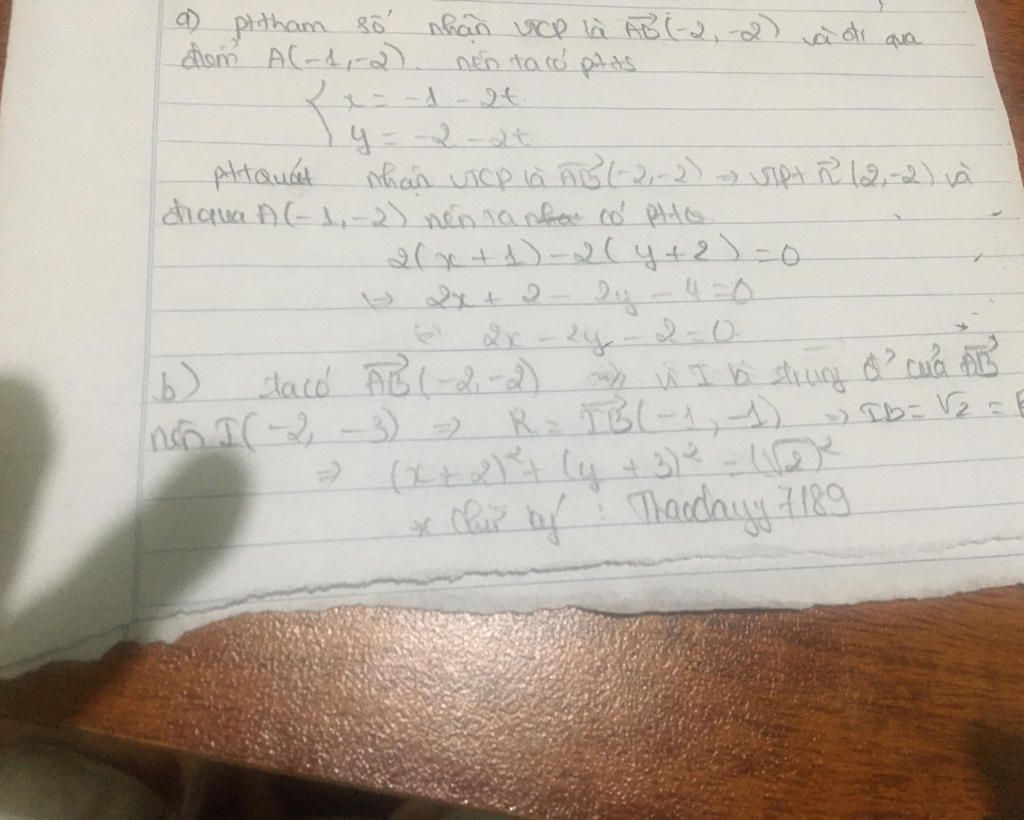 a) pttham số nhận VTCP là AB→(-2,-2) và đi qua
điểm A(-1,-2). nên ta có ptts
{ x = -1 - 2t
y = -2 - 2t
ptt quát nhận VTCP là AB→(-2,-2) → VTPT n→(2,-2) và
đi qua A(-1,-2) nên ta có pttq
2(x+1)-2(y+2)=0
⇔ 2x + 2 - 2y - 4=0
⇔ 2x - 2y - 2=0
b) ta có AB→(-2,-2) ⇒ vì I là trung đ' của AB→
nên I(-2, -3) ⇒ R = IB→(-1,-1) ⇒ Ib=√2 =
⇒ (x+2)²+(y+3)² = (√2)²
* Chữ ký : Thaodayy7189